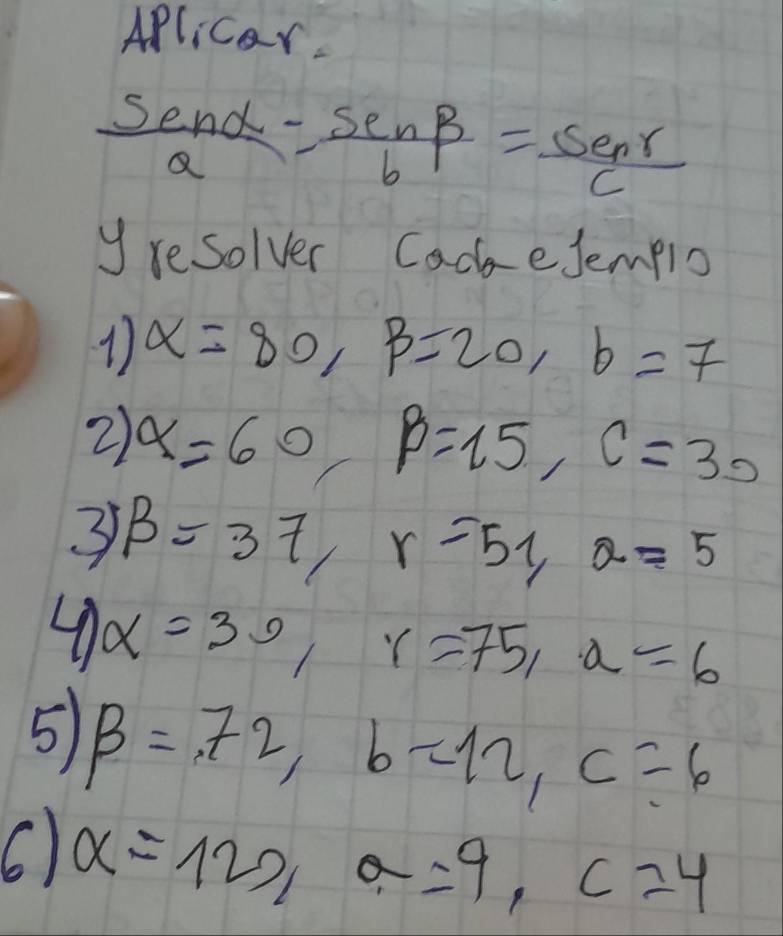 Aplicar.
senα/a = senβ/b = senr/c
y resolver cada ejemplo
1) α = 80, β = 20, b = 7
2) α = 60, β = 15, c = 30
3) β = 37, r = 51, a = 5
4) α = 30, r = 75, a = 6
5) β = 72, b = 12, c = 6
6) α = 120, a = 9, c = 4